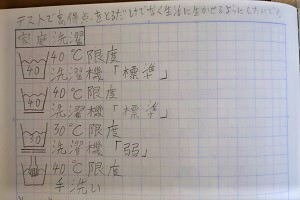 テストで高得点をとるだけでなく生活に生かせるようにしたいです
家庭洗濯
40 40℃限度
洗濯機「標準」
40 40℃限度
洗濯機「標準」
30 30℃限度
洗濯機「弱」
40℃限度
手洗い